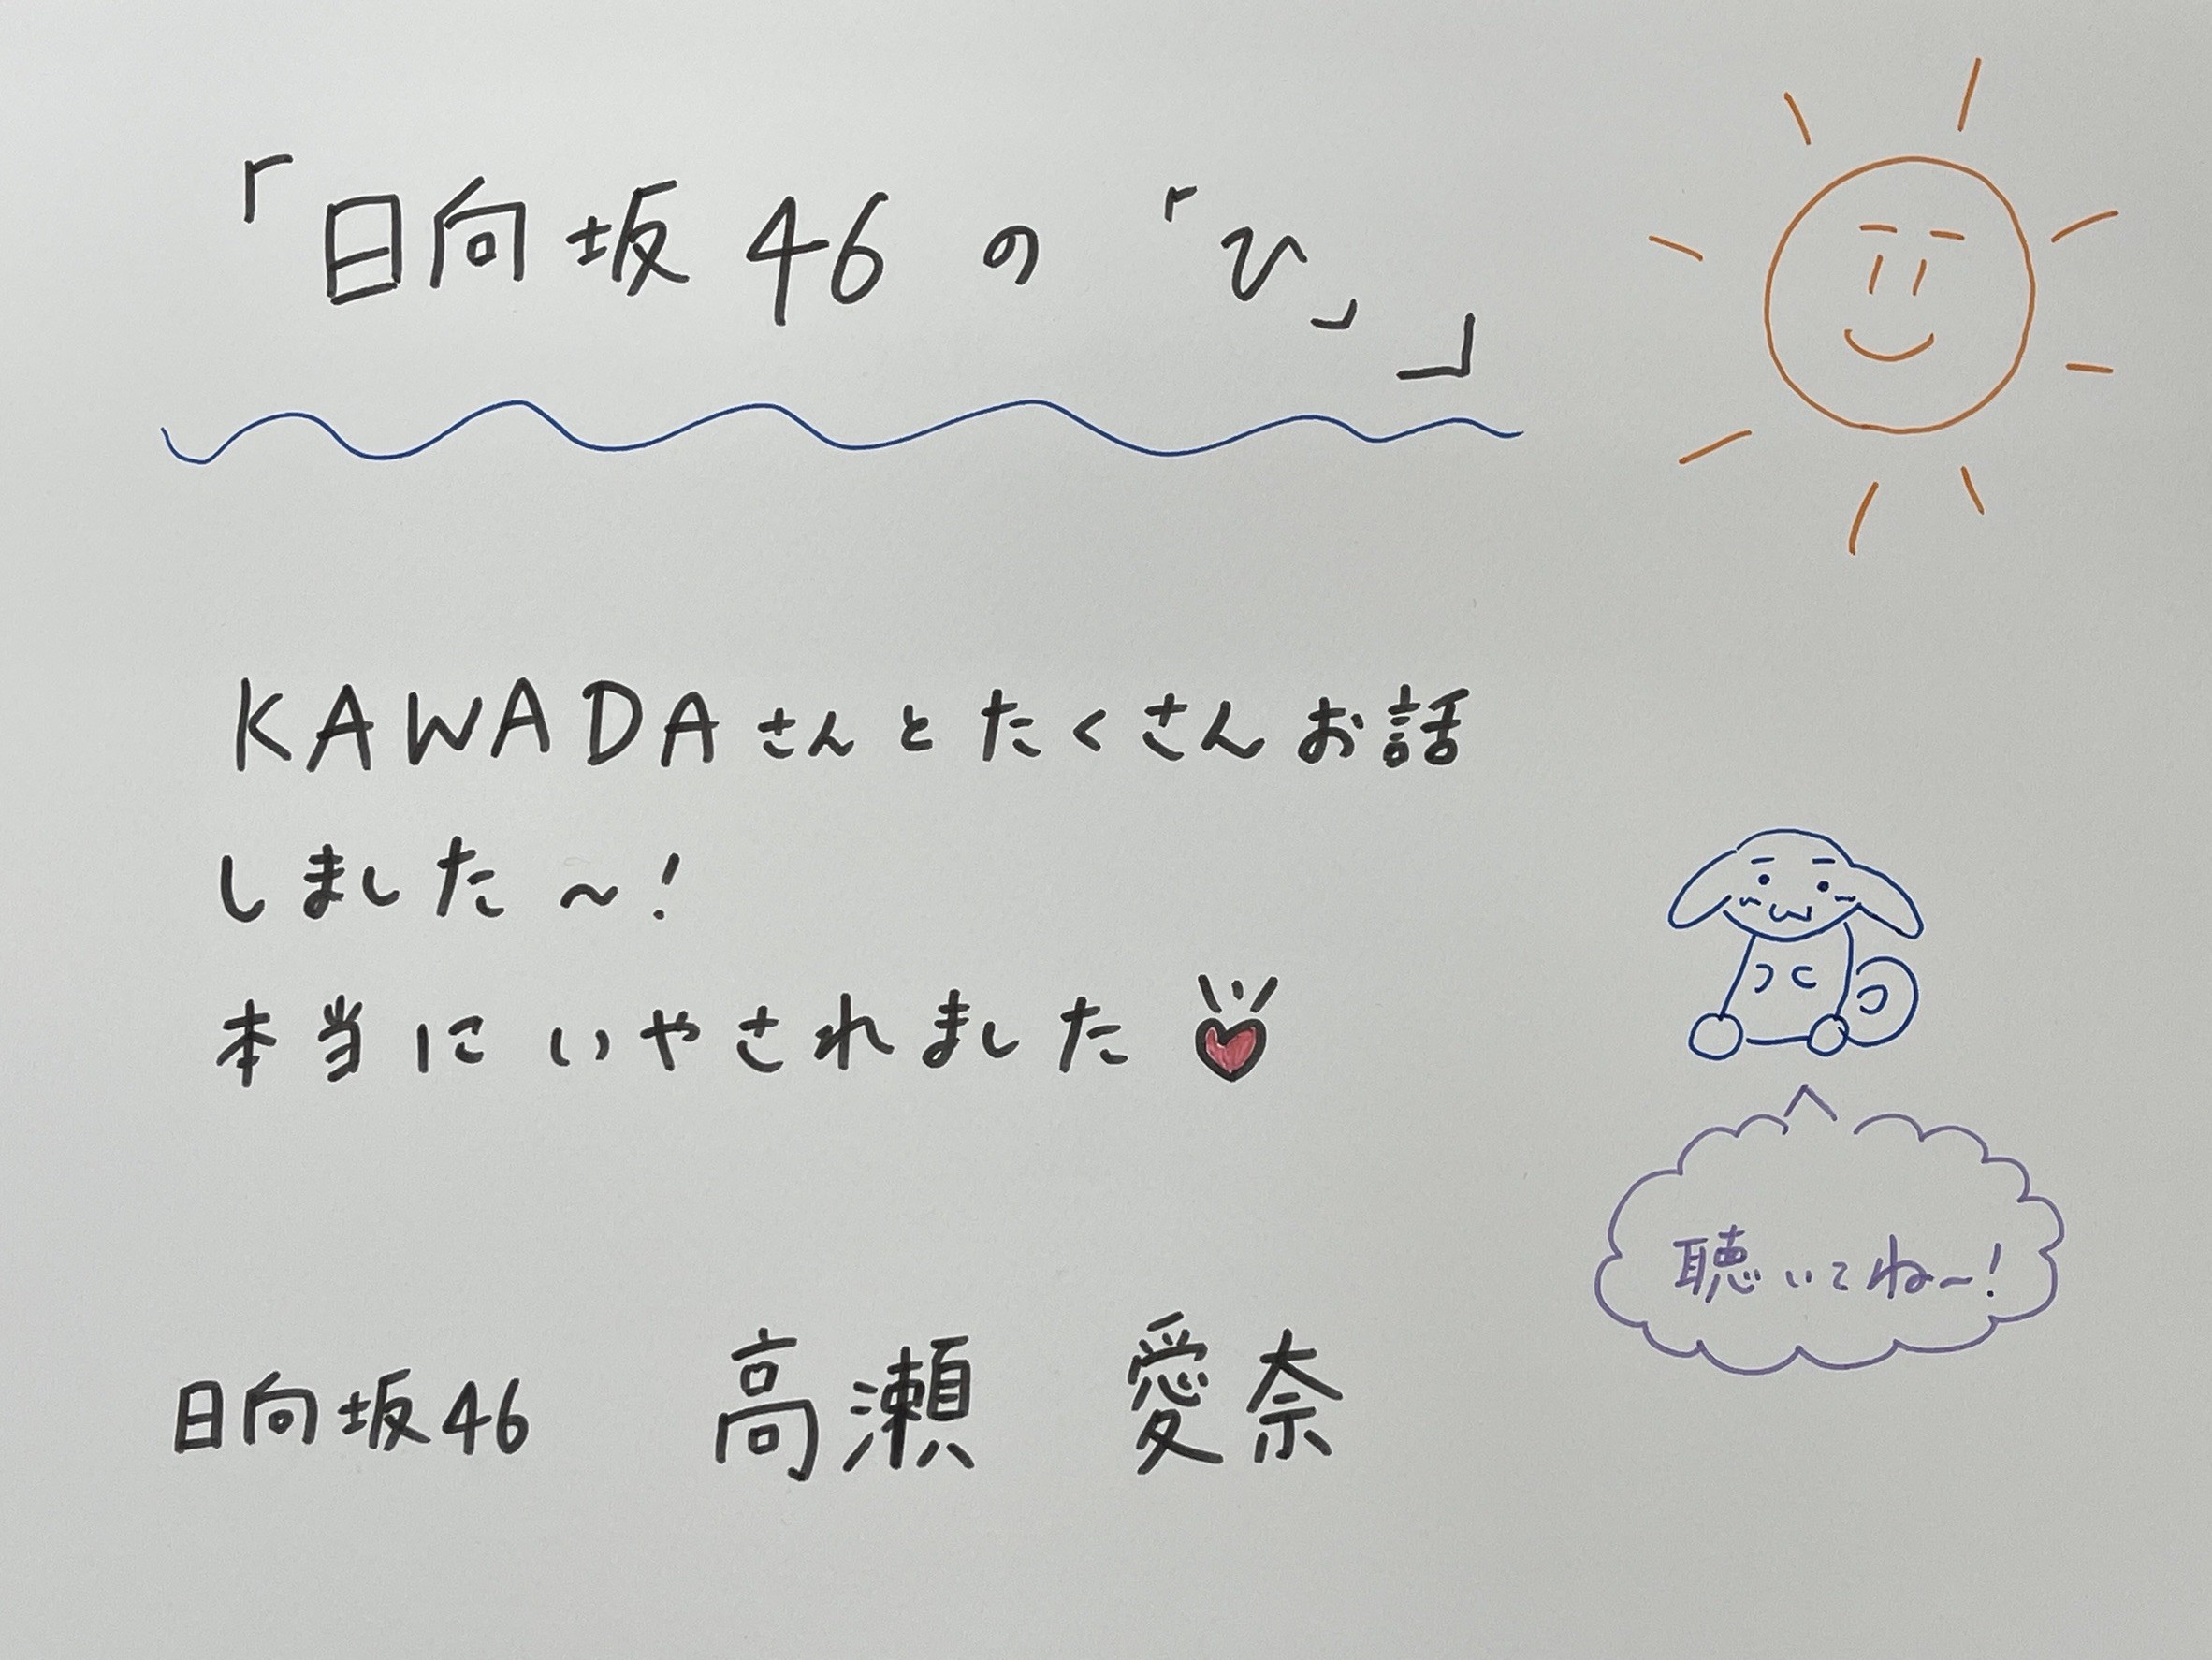 「日向坂46の「ひ」」
KAWADAさんとたくさんお話
しました〜!
本当にいやされました
聴いてね〜!
日向坂46 高瀬 愛奈